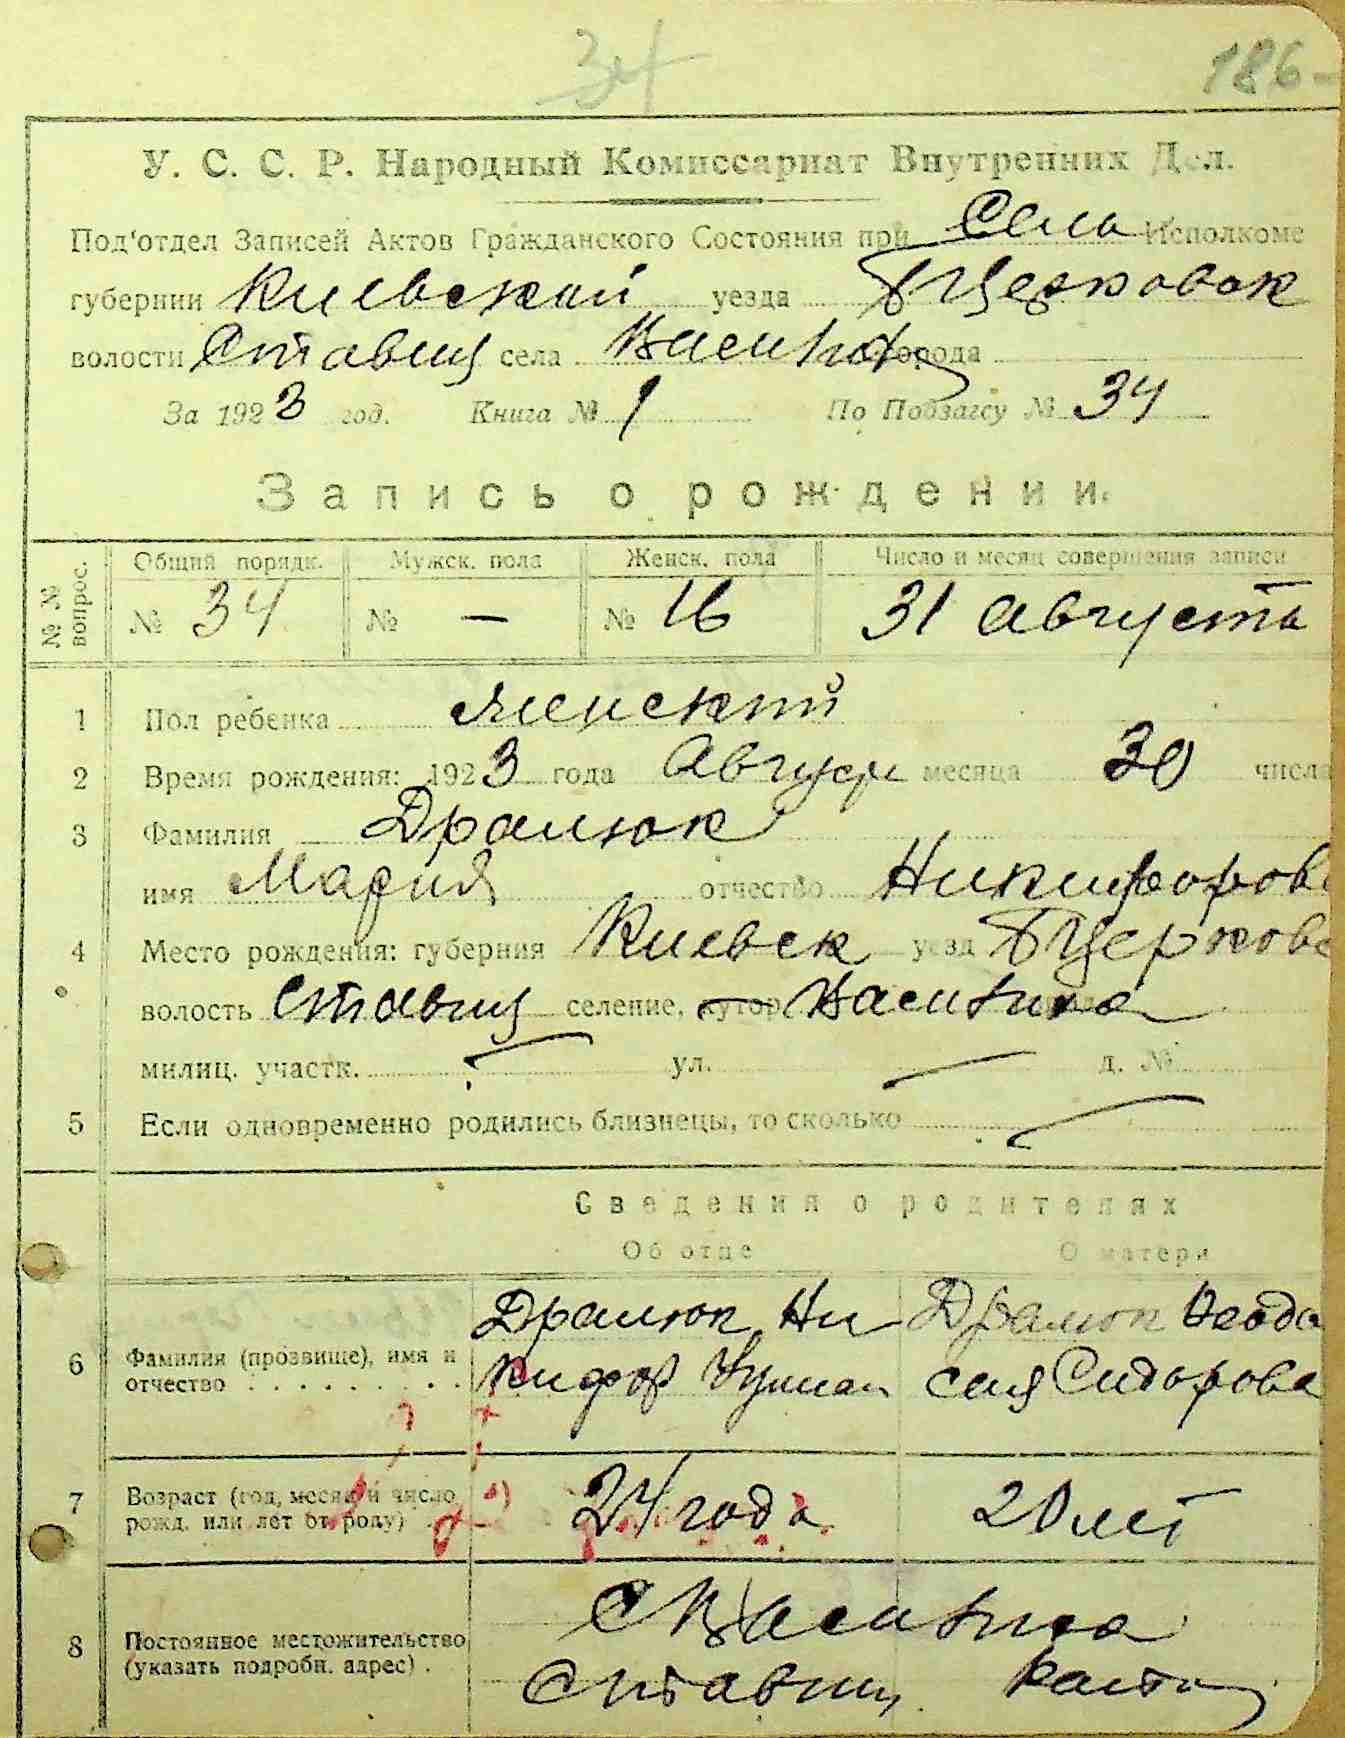 34
186-
У. С. С. Р. Народный Комиссариат Внутренних Дел.
Под'отдел Записей Актов Гражданского Состояния при Села Исполкоме
губернии Киевской уезда БЦерковск
волости Ставищ села города
За 1923 год. Книга № 1 По Подзагсу № 34
Запись о рождении.
№ № вопрос.
Общий порядк. Мужск. пола Женск. пола Число и месяц совершения записи
№ 34 № — № 16 31 Августа
1 Пол ребенка Женский
2 Время рождения: 1923 года Август месяца 30 числа
3 Фамилия Дралюк
имя Мария отчество Никифоров
4 Место рождения: губерния Киевск уезд БЦерковс
волость Ставищ селение, хутор, Василиха
милиц. участк. — ул. — д. №
5 Если одновременно родились близнецы, то сколько —
Сведения о родителях
Об отце О матери
Дралюк Ни Дралюк Феодо
6 Фамилия (прозвище), имя и кифор сия Сидорова
отчество
7 Возраст (год, месяц и число 24 года 20 лет
рожд. или лет от роду)
С Василиха
8 Постоянное местожительство
(указать подробн. адрес) . Ставищ